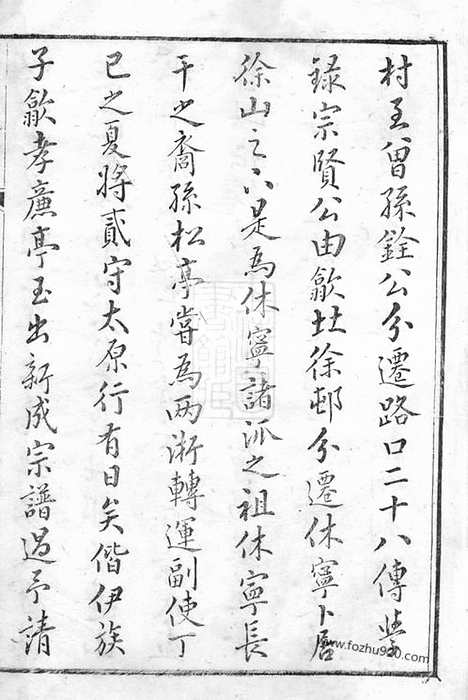 村至曾孫銓公分遷路口二十八傳學
録宗賢公由歙北徐邨分遷休寧卜居
徐山之下是為休寧諸派之祖休寧長
干之裔孫松亭嘗為两淅轉運副使丁
巳之夏將貳守太原行有日矣偕伊族
子歙孝廉亭玉出新成宗譜過予請
www.fozhu920.com